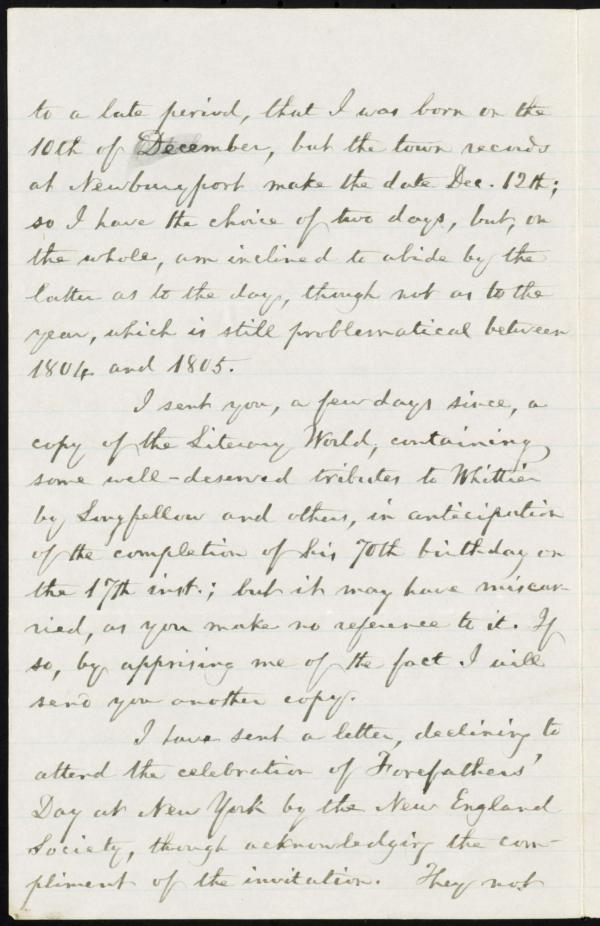 to a late period, that I was born on the
10th of December, but the town records
at Newburyport make the date Dec. 12th;
so I have the choice of two days, but, on
the whole, am inclined to abide by the
latter as to the day, though not as to the
year, which is still problematical between
1804 and 1805.
I sent you, a few days since, a
copy of the Literary World, containing
some well-deserved tributes to Whittier
by Longfellow and others, in anticipation
of the completion of his 70th birthday on
the 17th inst.; but it may have miscar-
ried, as you make no reference to it. If
so, by apprising me of the fact I will
send you another copy.
I have sent a letter, declining to
attend the celebration of Forefathers'
Day at New York by the New England
Society, though acknowledging the com-
pliment of the invitation. They not